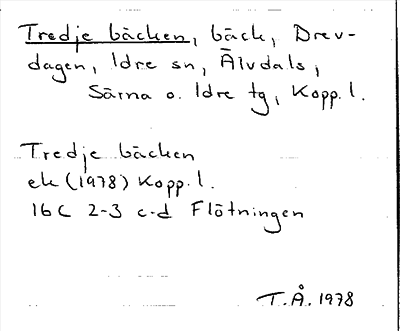 Tredje bäcken, bäck, Drev-
dagen, Idre sn, Älvdals,
Särna o. Idre tg, Kopp. l.
Tredje bäcken
ek (1978) Kopp. l.
16C 2-3 c-d Flötningen
T.Å. 1978